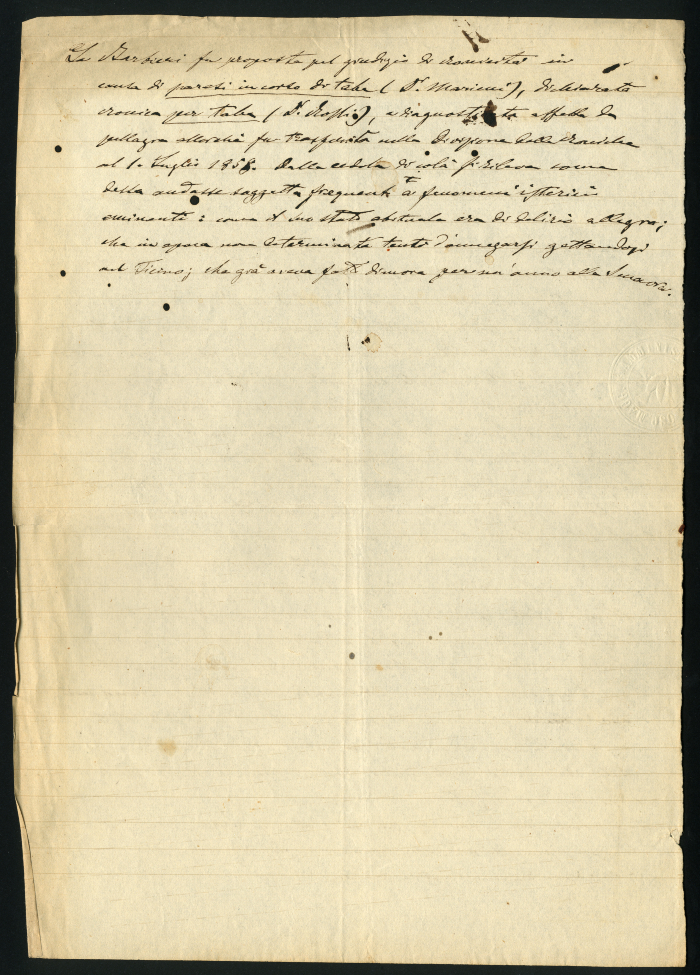 La Barbieri fu proposta pel giudizio di cronicità in
conto di paresi in corso di tabe (Dr. Marini), dichiarata
cronica per tabe (Dr. Rossi), e diagnosticata affetta da
pellagra allorchè fu trasferita nella Diospone delle Croniche
al 1. Luglio 1858. Dalla cedola di colà si rileva come
dessa andasse soggetta a frequenti fenomeni isterici
eminenti: come il suo stato abituale era di delirio allegro;
che in epoca non determinata tentò d'annegarsi gettandosi
nel Ticino; che già aveva fatt dimora per un anno alla Senavra.